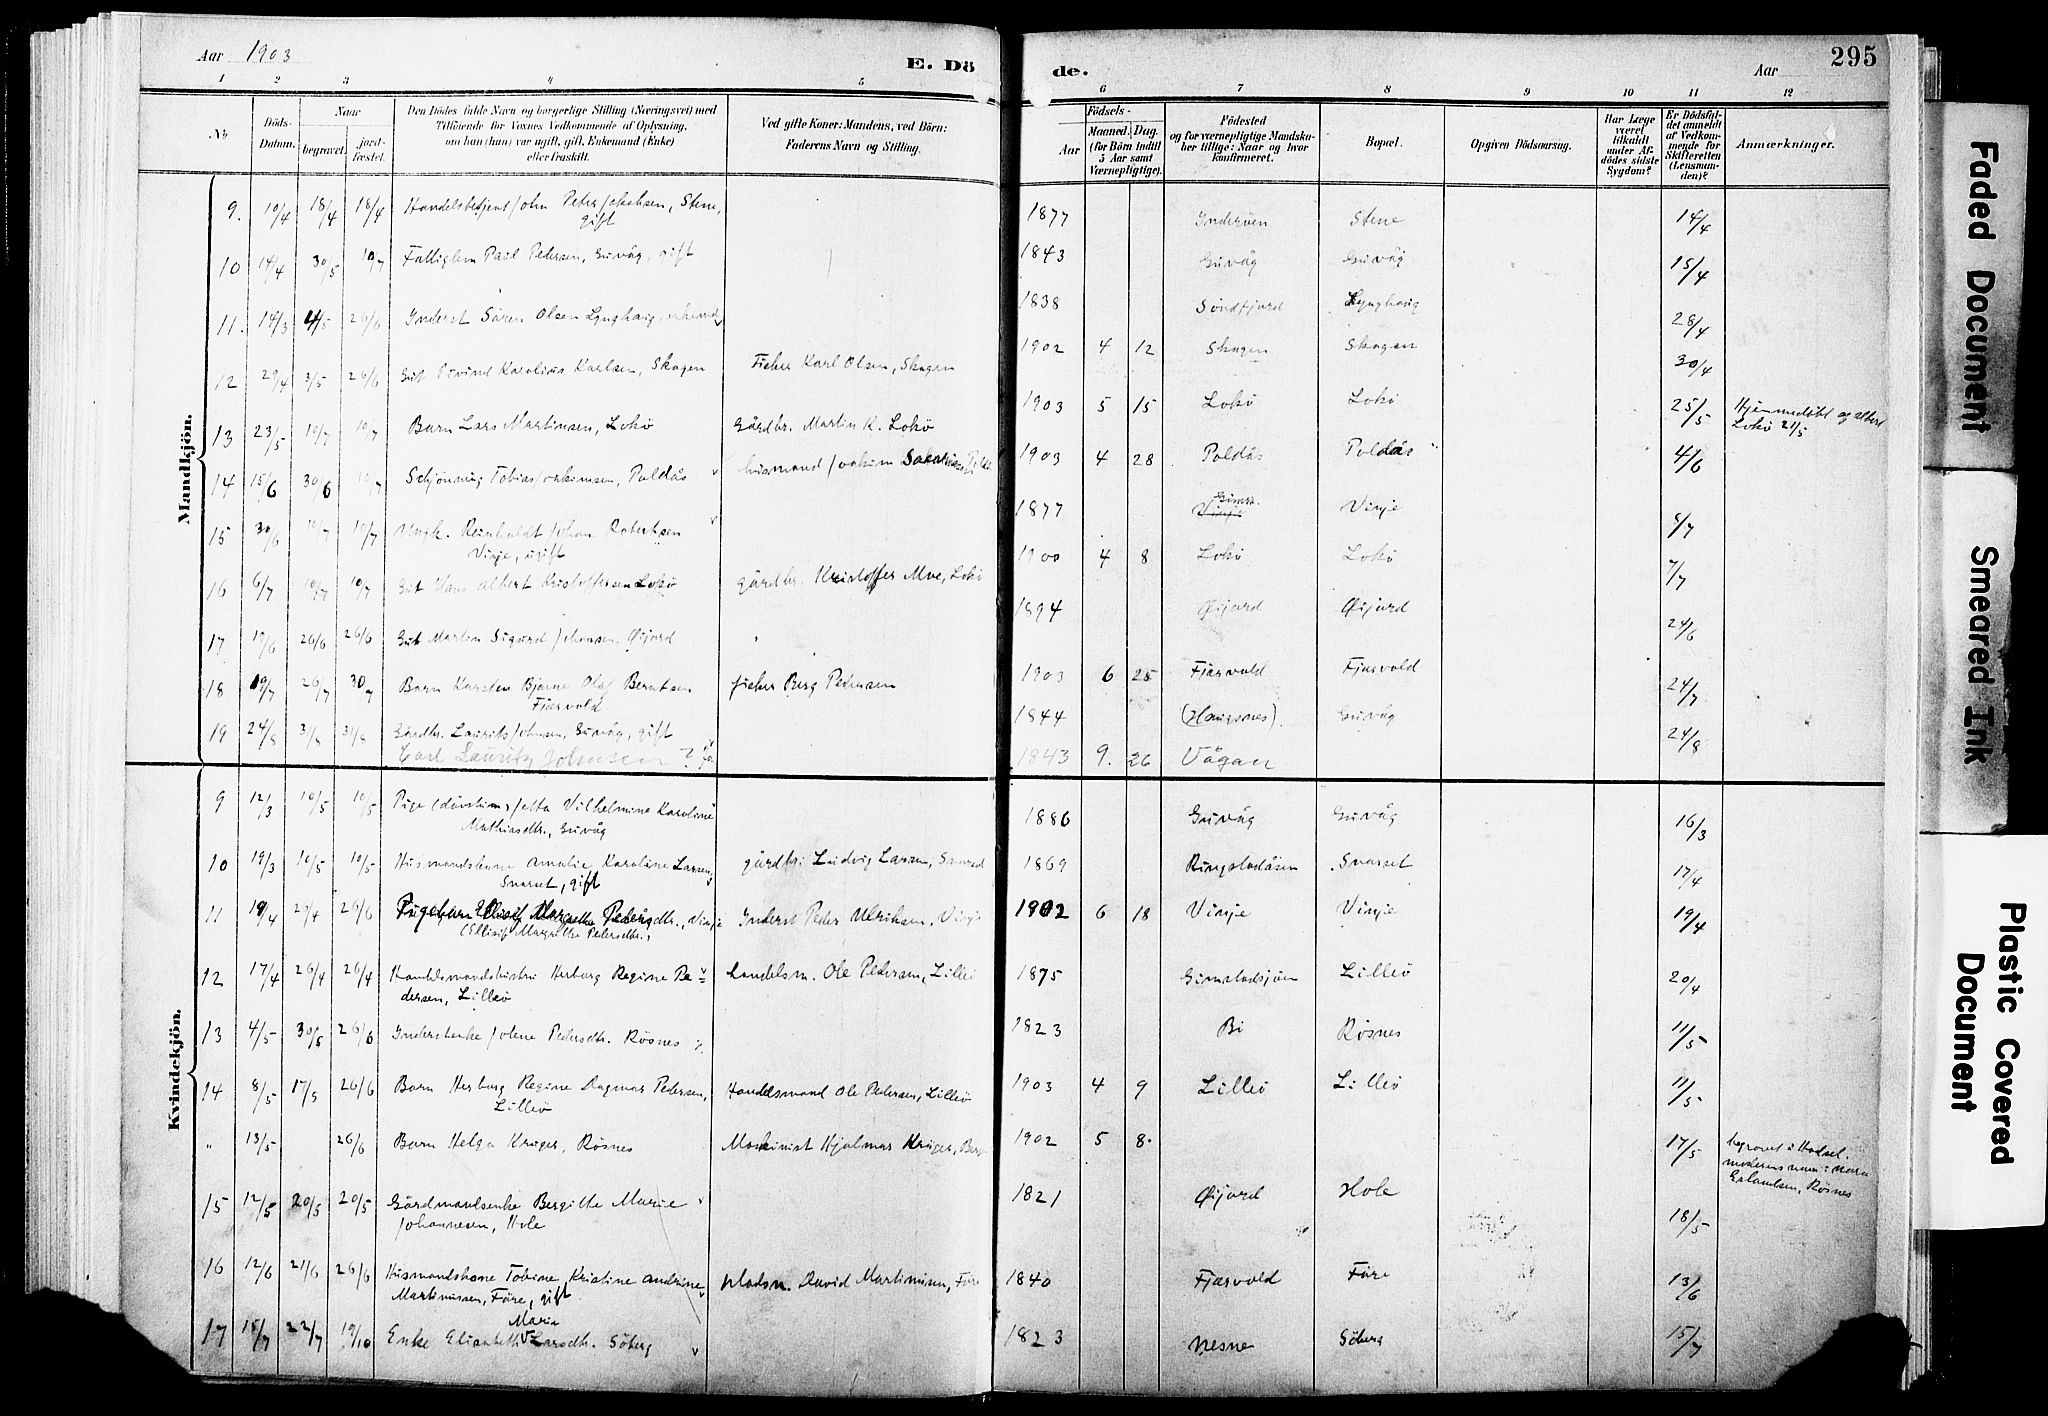 Aar 1903
E. Dö
de.
Aar
295
1 2 3 4 5
6 7 8 9 10 11 12
No
Döds-Datum.
Naar
begravet.
jord-fæstet.
Den Dödes fulde Navn og borgerlige Stilling (Næringsvei) med
Tilföiende for Voxnes Vedkommende af Oplysning,
om han (hun) var ugift, gift, Enkemand (Enke)
eller fraskilt.
Ved gifte Koner: Mandens, ved Börn:
Faderens Navn og Stilling.
Födsels-
Aar
Maaned. Dag.
(for Börn indtil
5 Aar samt
Værnepligtige).
Födested
og for værnepligtige Mandska-
ber tillige: Naar og hvor
konfirmeret.
Bopæl.
Opgiven Dödsaarsag.
Har Læge
været
tilkaldt
under Af-
dödes sidste
Sygdom?
Er Dödsfal-
det anmeldt
af Vedkom-
mende for
Skifteretten
(Lensman-
den)?
Anmærkninger.
Mandkjön.
9. 10/4 18/4 18/4 Handelsbetjent Johan Peter Jakobsen, Stene, gift 1877 Inderöen Stene 14/4
10 14/4 30/5 10/7 Fattiglem Paul Pedersen, Guvåg, gift 1843 Guvåg Guvåg 15/4
11. 14/3 4/5 26/6 Inderst Sören Olsen Lynghaug, 1838 Söndfjord Lynghaug 28/4
12 29/4 3/5 26/6 Gut Eivind Karolius Karlsen, Skagen Fisker Karl Olsen, Skagen 1902 4 12 Skagen Skagen 30/4
13 23/5 10/7 10/7 Barn Lars Martinsen, Lokø Gårdbr. Martin K. Lokø 1903 5 15 Lokø Lokø 25/5 Hjemmedöbt og
Lokø 21/5
14 15/6 30/6 10/7 Schjönning Tobias Joakimsen, Poldås husmand Joakim 1903 4 28 Poldås Poldås 4/6
15 30/6 10/7 10/7 Ungk. Reinholdt Johan Robertsen
Vinje, ugift 1877 Vinje Vinje 8/7
16 6/7 10/7 10/7 Gut Hans Albert Kristoffersen Lokø gårdbr. Kristoffer Moe, Lokø 1900 4 8 Lokø Lokø 7/7
17 19/6 26/6 26/6 Gut Martin Sigurd Johansen. Øijord 1894 Øijord Øijord 24/6
18 19/7 26/7 30/7 Barn Karsten Bjarne Olaf Berntsen
Fjærvold fisker Berg Pedersen 1903 6 25 Fjærvold Fjærvold 24/7
19 24/8 31/8 31/8 Gårdbr. Laurits Johnsen, Guvåg, gift 1844 (Haugsnes). Guvåg 24/8
Carl Lauritz Johnsen ? 1843 9. 26 Vågan
Kvindekjön.
9 12/3 10/5 10/5 Pige (dövstum) Jetta Vilhelmine Karoline
Mathiasdtr., Guvåg 1886 Guvåg Guvåg 16/3
10 19/3 10/5 10/5 Husmandskone Amalie Karoline Larsen,
Svarset, gift gårdbr. Ludvig Larsen, 1869 Ringstadåsen Svarset 17/4
11 19/4 29/4 26/6 Pigebarn Margrethe Pedersdtr., Vinje
(Ellisif Margrethe Pedersdtr.) Inderst Peder Ulriksen, Vinje 1902 6 18 Vinje Vinje 19/4
12 17/4 26/4 26/4 Handelsmandshustru Herborg Regine Pe-
dersen, Lilleö handelsm. Ole Pedersen, Lilleö 1875 Gimstadsjöen Lilleö 20/4
13 4/5 30/5 26/6 Inderstenke Jolene Pedersdtr. Røsnes 1823 Bö Røsnes 11/5
14 8/5 17/5 26/6 Barn Herborg Regine Dagmar Pedersen,
Lilleö Handelsmand Ole Pedersen, Lilleö 1903 4 9 Lilleö Lilleö 11/5
" 13/5 26/6 Barn Helga Krüger, Røsnes Maskinist Hjalmar Krüger, 1902 5 8. 17/5 begravet i Hadsel.
moderens navn:
Røsnes
15 12/5 20/5 20/5 Gårdmandsenke Bergitte Marie
Johannesen, Hole 1821 Øijord Hole 18/5
16 12/6 21/6 26/6 Husmandskone Tobine, Kristine Andrine
Martinussen, Føre, gift pladsm. David Martinussen, Føre 1840 Fjærvold Føre 13/6
17 15/7 22/7 19/10 Enke Elisabeth Marie Larsdtr. Söberg 1823 Nesne Söberg 15/7
Faded Document
Smeared Ink
Plastic Covered
Document